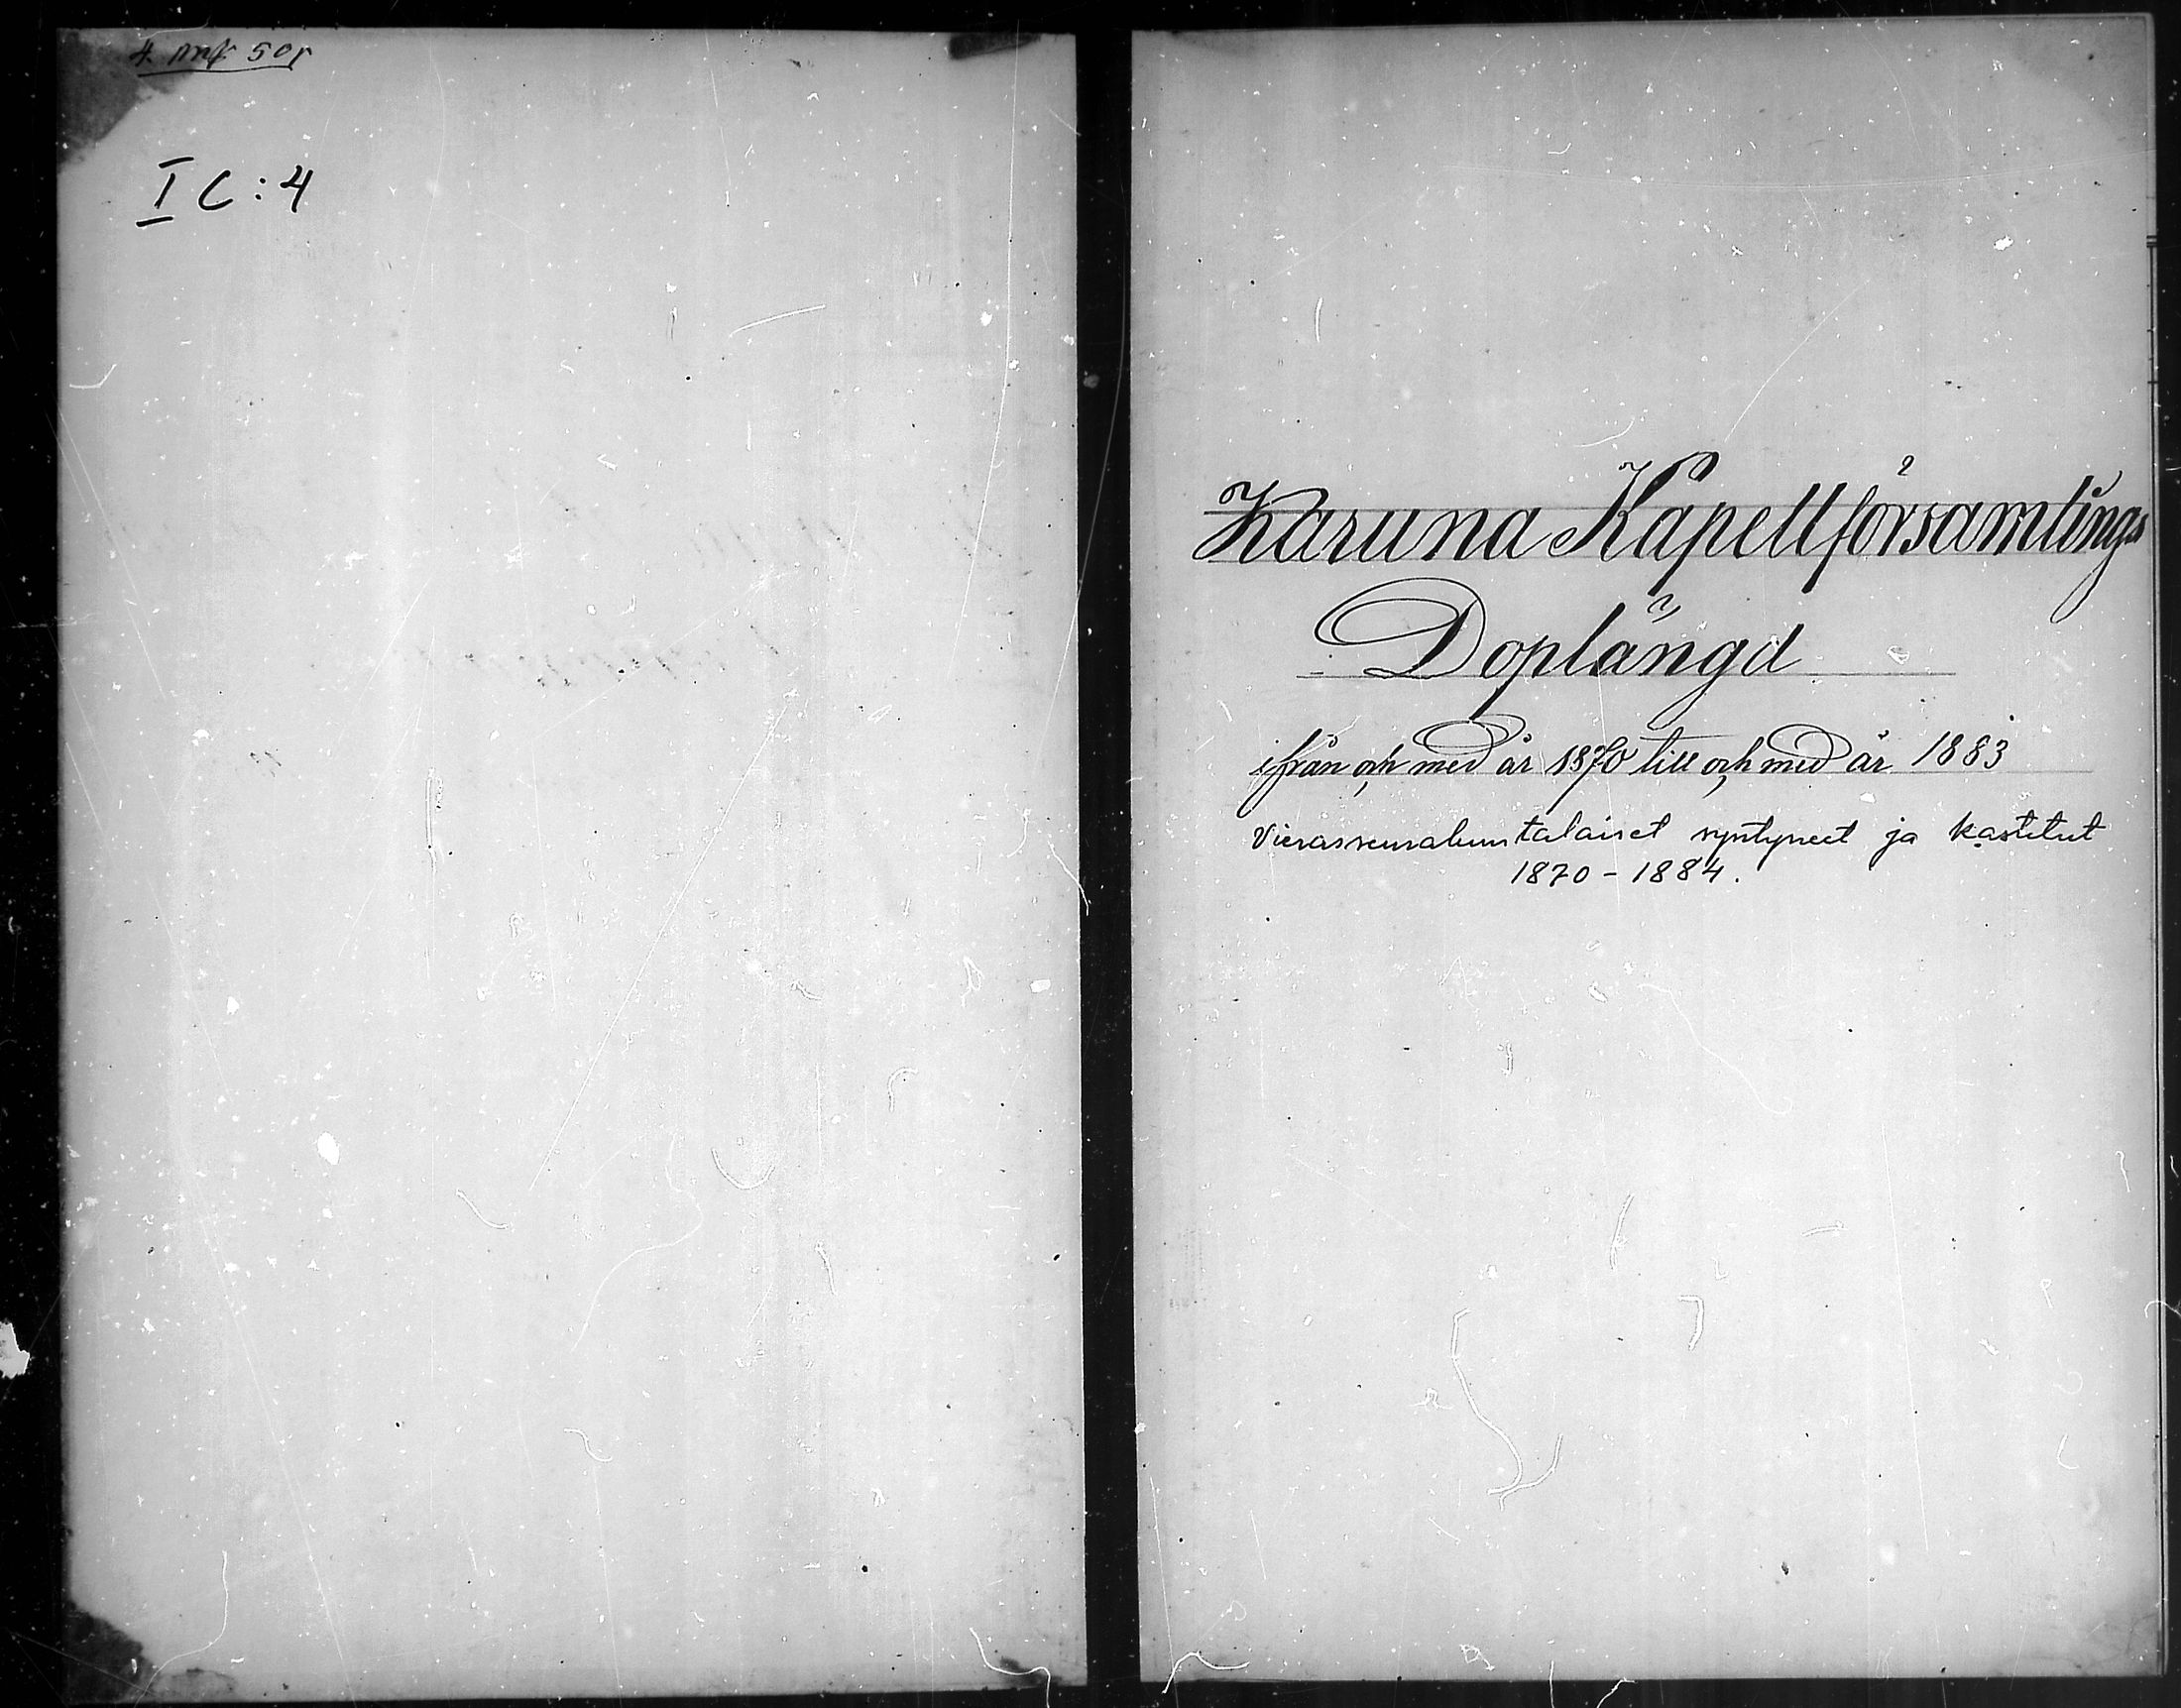 4. mk 50 p
I C:4
Karuna Kapellförsamlings
Doplängd
ifrån och med år 1870 till och med år 1883
Vierasseurakuntalaiset syntyneet ja kastetut
1870-1884.